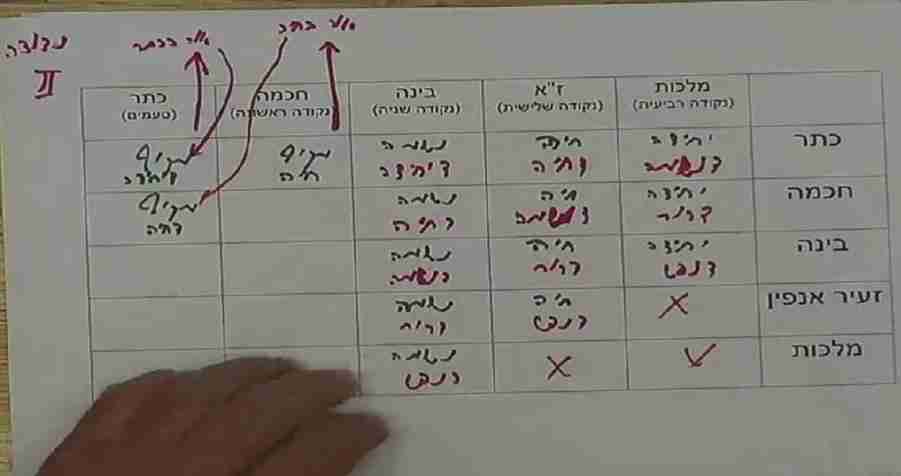 נקודה II
אור בכתר
אור בחכ
מלכות (נקודה רביעית)
ז"א (נקודה שלישית)
בינה (נקודה שניה)
חכמה (נקודה ראשונה)
כתר (טעמים)
כתר
יחידה דנשמה
חיה דחיה
נשמה דיחידה
מקיף חיה
מקיף דיחידה
חכמה
יחידה דרוח
חיה דנשמה
נשמה דחיה
מקיף דחיה
בינה
יחידה דנפש
חיה דרוח
נשמה דנשמה
זעיר אנפין
X
חיה דנפש
נשמה דרוח
מלכות
X
נשמה דנפש